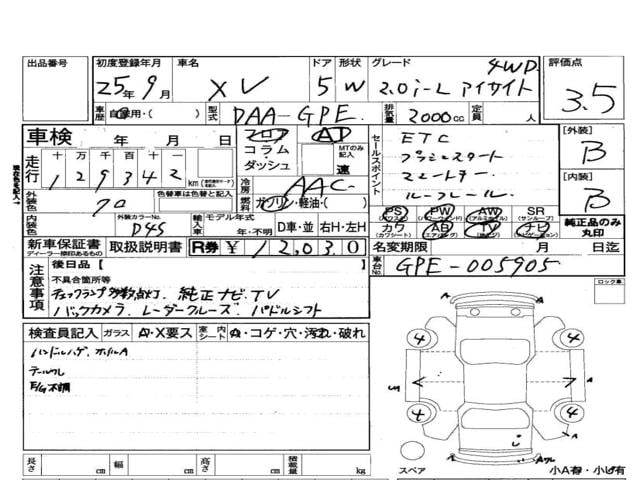 出品番号 初度登録年月 車名 ドア 形状 グレード 評価点
25年 9月 XV 5 W 2.0i-L アイサイト 4WD 3.5
車歴 自家用・( ) 型式 DAA-GPE 排気量 2000cc 定員 人
車検 年 月 日 フロア コラム・ダッシュ AT MTのみ記入 速
走行 十万千百十一 129342 km
セールスポイント
ETC
プッシュスタート
スマートキー
ルーフレール
[外装] B
[内装] B
純正品のみ丸印
冷房 AAC
燃料 ガソリン・軽油・( )
外装色 クロ 色替車は色替前の色
内装色 外装カラーNo. D4S 輸入車 モデル年式 年・不明 D車・並 右H・左H
PS (パワステ) PW (パワーウィンド) AW (アルミホイル) SR (サンルーフ)
カワ (カワシート) AB (エアバッグ) TV (テレビ) ナビ
新車保証書 ディーラー捺印あるもの 取扱説明書 R券 ¥ 12,030
名変期限 月 日迄
車台No. GPE-005905
注意事項
後日品[ ]
不具合箇所等
チェックランプ多数点灯. 純正ナビ.TV
バックカメラ. レーダークルーズ. パドルシフト
ロック車
検査員記入 ガラス A・X要ス 室内シート A・コゲ・穴・汚れ・破れ
ハンドルハゲ.
テールワレ
E/G不調
4 4
A
4 4
A
スペア
小A有・小ビ有
長さ cm 幅 cm 高さ cm 積載量 kg